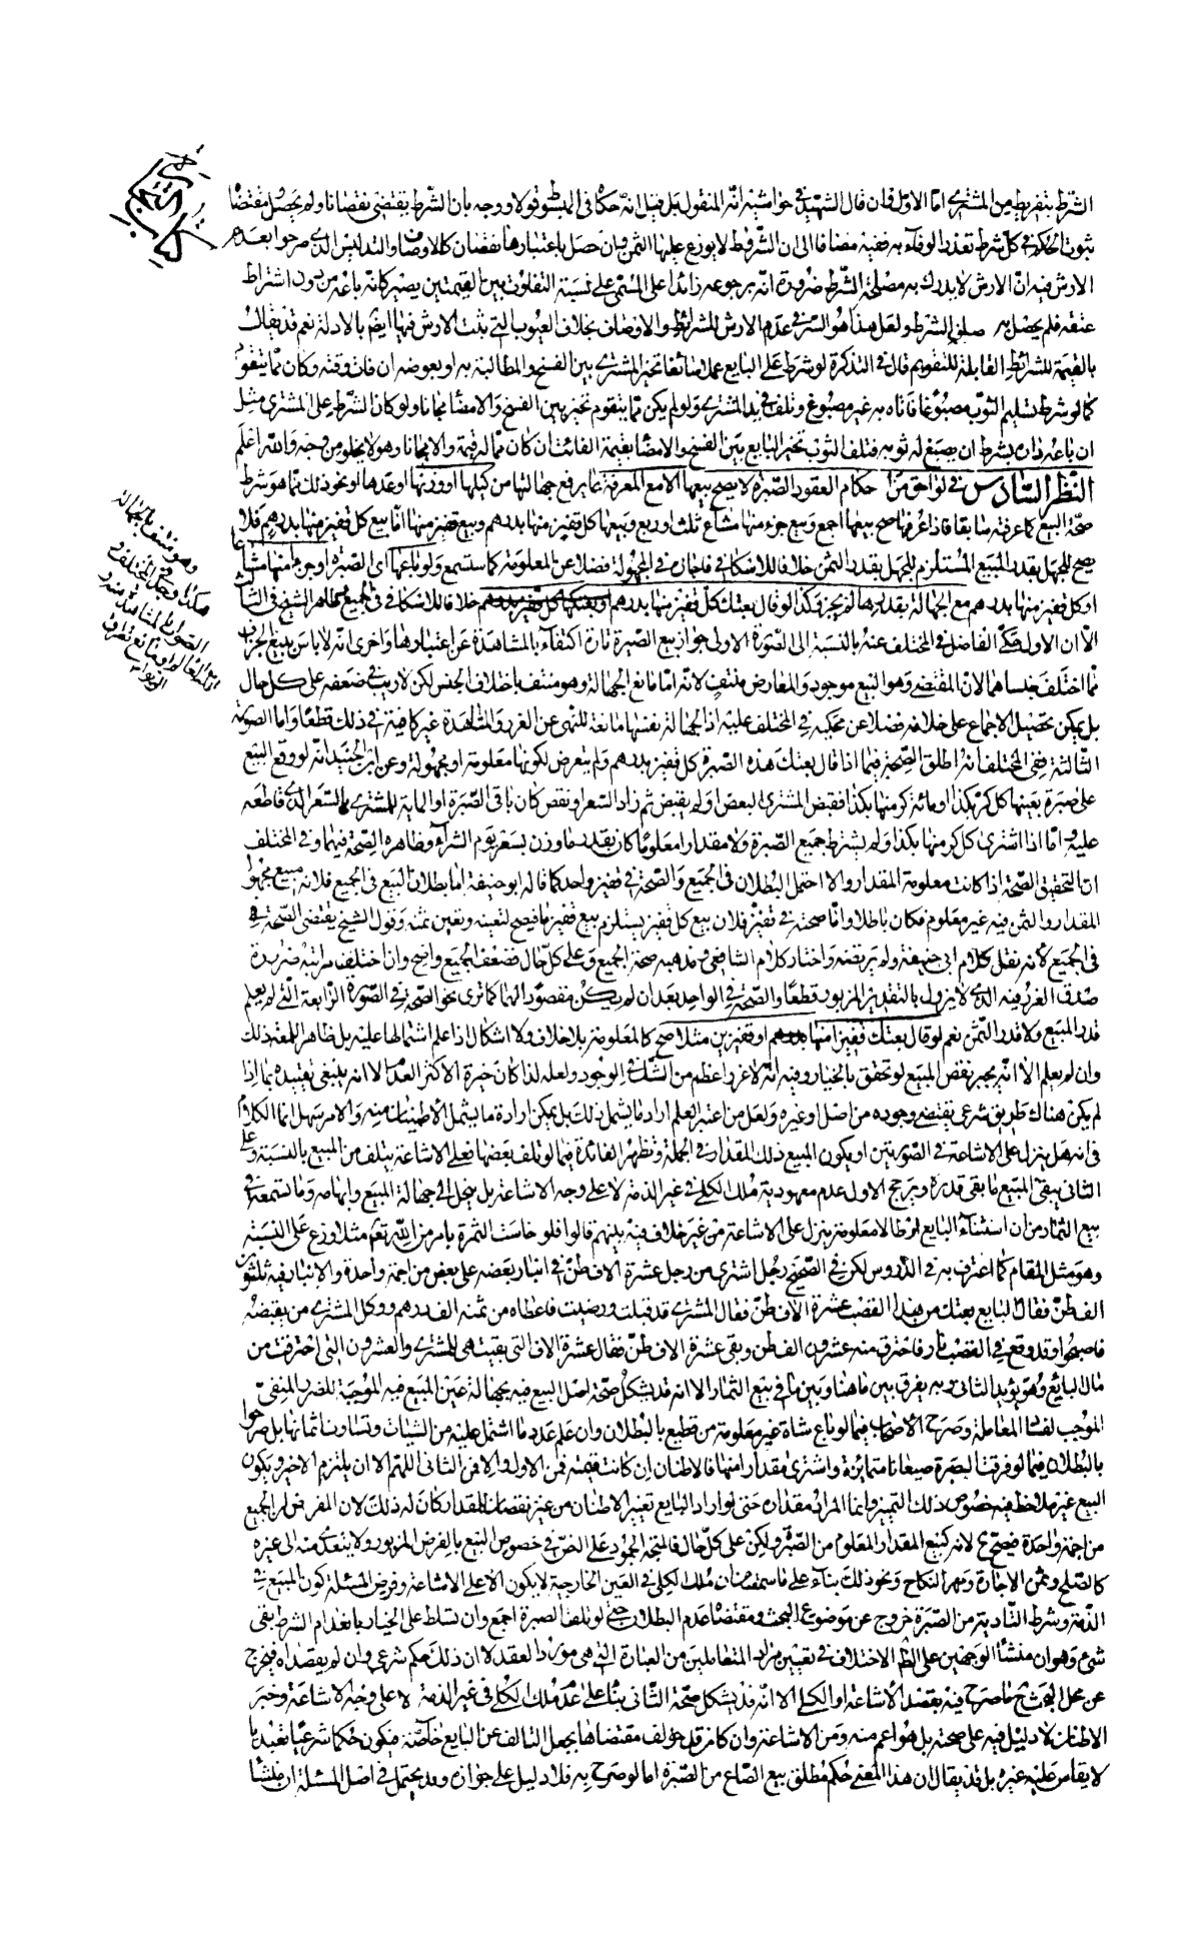 كتاب التجارة
الشرط بتفريط من المشتري اما الاول فان قال الشهيد في حواشيه انه المنقول بل قيل انه حكاه في المبسوط قولا ووجه بان الشرط يقتضى نقصانا ولم يحصل مقتضا
ثبوت الحكم في كل شرط تعذر الوفاء به ففيه مضافا الى ان الشروط لا يوزع عليها الثمن وان حصل باعتبارها نقصان كالاوصاف والتدليس الذي صرحوا بعدم
الارش فيه ان الارش لا يدرك به مصلحة الشرط ضرورة انه برجوعه زائدا على المسمى على نسبة التفاوت بين القيمتين يصير كانه باعه من دون اشتراط
عتقه فلم يحصل به صلة الشرط ولعل هذا هو السر في عدم الارش للشرائط والاوصاف بخلاف العيوب التي ثبت الارش فيها ايضا بالادلة نعم قد يقال
بالقيمة للشرائط القابلة للتقويم قال في التذكرة لو شرط على البايع عملا سائغا تخير المشتري بين الفسخ والمطالبة به او بعوضه ان فات وقته وكان مما يتقوم
كما لو شرط تسليم الثوب مصبوغا فاتاه به غير مصبوغ وتلف في يد المشتري ولو لم يكن مما يتقوم تخير بين الفسخ والامضاء مجانا ولو كان الشرط على المشتري مثل
ان باعه داره بشرط ان يصبغ له ثوبه فتلف الثوب تخير البايع بين الفسخ والامضاء بقيمة الفائت ان كان مما له قيمة والا مجانا وهو لا يخلو من وجه والله اعلم
النظر السادس في لواحق من احكام العقود الصبرة لا يصح بيعها الا مع المعرفة بما يرفع جهالتها من كيلها او وزنها او عدها او نحو ذلك مما هو شرط
صحة البيع كما عرفته سابقا فاذا عرفها صح بيعها اجمع وبيع جزء منها مشاع ثلث او ربع وبيعها كل قفيز منها بدرهم وبيع قفيز منها اما بيع كل قفيز منها بدرهم فلا
يصح للجهل بقدر المبيع المستلزم للجهل بقدر الثمن خلافا للاسكافي فاجازه في المجهولة فضلا عن المعلومة كما ستسمع ولو باعها اي الصبرة او جزء منها مشاعا
او كل قفيز منها بدرهم مع الجهالة بقدرها لم يجز وكذا لو قال بعتك كل قفيز منها بدرهم خلافا للاسكافي في الجميع وظاهر الشيخ في الثالث
الا ان الاول حكى الفاضل في المختلف عنه بالنسبة الى الصورة الاولى جواز بيع الصبرة تارة اكتفاء بالمشاهدة عن اعتبارها واخرى انه لا باس ببيع الجزاف
مما اختلف جنساهما لان المقتضي وهو البيع موجود والمعارض منتف لانه اما مانع الجهالة وهو منتف باختلاف الجنس لكن لا ريب في ضعفه على كل حال
بل يمكن تحصيل الاجماع على خلافه فضلا عن محكيه في المختلف عليه اذ الجهالة بنفسها مانعة للنهى عن الغرر والمشاهدة غير كافية في ذلك قطعا واما الصورة
الثالثة ففي المختلف انه اطلق الصحة فيما اذا قال بعتك هذه الصبرة كل قفيز بدرهم ولم يتعرض لكونها معلومة او مجهولة وعن ابن الجنيد انه لو وقع البيع
على صبرة بعينها كل كر بكذا او مائة كر منها بكذا فقبض المشتري البعض او لم يقبض ثم زاد السعر او نقص كان باقي الصبرة او المائة للمشتري بالسعر الذي قاطعه
عليه اما اذا اشترى كل كر منها بكذا ولم يشترط جميع الصبرة ولا مقدارا معلوما كان بقدر ما وزن بسعر يوم الشراء وظاهره الصحة فيهما وفي المختلف
ان التحقيق الصحة اذا كانت معلومة المقدار والا احتمل البطلان في الجميع والصحة في قفيز واحد كما قاله ابو حنيفة اما بطلان البيع في الجميع فلانه مبيع مجهول
المقدار والثمن فيه غير معلوم فكان باطلا واما صحته في قفيز فلان بيع كل قفيز يستلزم بيع قفيز ما فيصح لتعينه وتعين ثمنه وقول الشيخ يقتضى الصحة
في الجميع لانه نقل كلام ابي حنيفة ولم يرتضه واختار كلام الشافعي ومذهبه صحة الجميع وعلى كل حال فضعف الجميع واضح وان اختلفت مراتبه ضرورة
صدق الغرر فيه الذي لا يزول بالتقدير المزبور قطعا والصحة في الواحد بعد ان لم يكن مقصودا لهما كما ترى نحو الصحة في الصورة الرابعة التي لم يعلم
قدر المبيع ولا قدر الثمن نعم لو قال بعتك قفيزا منها او قفيزين مثلا صح كالمعلومة بلا خلاف ولا اشكال اذا علم اشتمالها عليه بل ظاهر اللمعة ذلك
وان لم يعلم الا انه يجبر نقص المبيع لو تحقق بالخيار وفيه انه لا غرر اعظم من الشك في الوجود ولعله لذا كان خيرة الاكثر العدم الا انه ينبغي تقييده بما اذا
لم يكن هناك طريق شرعي يقتضي وجوده من اصل او غيره ولعل من اعتبر العلم اراد ما يشمل ذلك بل يمكن ارادة ما يشمل الاطمينان منه والامر سهل انما الكلام
في انه هل ينزل على الاشاعة في الصورتين او يكون المبيع ذلك المقدار في الجملة وتظهر الفائدة فيما لو تلف بعضها فعلى الاشاعة يتلف من المبيع بالنسبة وعلى
الثاني يبقى المبيع ما بقى قدره ويرجح الاول عدم معهودية ملك الكلي في غير الذمة لا على وجه الاشاعة بل ينحل الى جهالة المبيع وابهامه وما تسمعه في
بيع الثمار من ان استثناء البايع ارطالا معلومة ينزل على الاشاعة من غير خلاف فيه بينهم قالوا فلو خاست الثمرة بامر من الله تعم مثلا وزع على النسبة
وهو مثل المقام كما اعترف به في الدروس لكن في الصحيح رجل اشترى من رجل عشرة الاف طن في انبار بعضه على بعض من اجمة واحدة والانبار فيه ثلثون
الف طن فقال البايع بعتك من هذا القصب عشرة الاف طن فقال المشتري قد قبلت ورضيت فاعطاه من ثمنه الف درهم ووكل المشتري من يقبضه
فاصبحوا وقد وقع في القصب نار فاحترق منه عشرون الف طن وبقى عشرة الاف طن فقال عشرة الاف التي بقيت هي للمشتري والعشرون التي احترقت من
مال البايع وهو يؤيد الثاني وبه يفرق بين ما هنا وبين ما في بيع الثمار الا انه قد يشكل صحة اصل البيع فيه بجهالة عين المبيع فيه الموجبة للضرر المنفي
الموجب لفساد المعاملة وصرح الاصحاب فيما لو باع شاة غير معلومة من قطيع بالبطلان وان علم عدد ما اشتمل عليه من الشياه وتساوت اثمانها بل صرحوا
بالبطلان فيما لو فرقت الصبرة صيعانا متمايزة واشترى مقدارا منها فالاطنان ان كانت قيمية فمن الاول والا فمن الثاني اللهم الا ان يلتزم الاخير ويكون
البيع غير ملاحظ فيه خصوص ذلك التمييز وانما المراد مقداره حتى لو اراد البايع تغيير الاطنان من غير نقصان المقدار كان له ذلك لان المفروض ان الجميع
من اجمة واحدة فيصح ح لانه كبيع المقدار المعلوم من الصبرة ولكن على كل حال فالمتجه الجمود على النص في خصوص البيع بالفرض المزبور ولا يتعدى منه الى غيره
كالصلح وثمن الاجارة ومهر النكاح ونحو ذلك بناء على ما سمعت من ان ملك الكلي في العين الخارجية لا يكون الا على الاشاعة وفرض المسئلة كون المبيع في
الذمة وشرط التادية من الصبرة خروج عن موضوع البحث ومقتضاه عدم البطلان حتى لو تلف الصبرة اجمع وان تسلط على الخيار بانعدام الشرط بقى
شئ وهو ان منشأ الوجهين على الظ الاختلاف في تعيين مراد المتعاملين من العبارة التي هي مورد العقد لا ان ذلك حكم شرعي وان لم يقصداه فيخرج
عن محل البحث ح ما صرح فيه بقصد الاشاعة او الكلي الا انه قد يشكل صحة الثاني بناء على عدم ملك الكلي في غير الذمة لا على وجه الاشاعة وخبر
الاطنان لا دليل فيه على صحته بل هو اعم منه ومن الاشاعة وان كان قد خولف مقتضاها بجعل التالف عن البايع خاصة فيكون حكما شرعيا تعبديا
لا يقاس عليه غيره بل قد يقال ان هذا المعنى حكم مطلق بيع الصاع من الصبرة اما لو صرح به فلا دليل على جوازه وقد يحتمل في اصل المسئلة ان منشأ